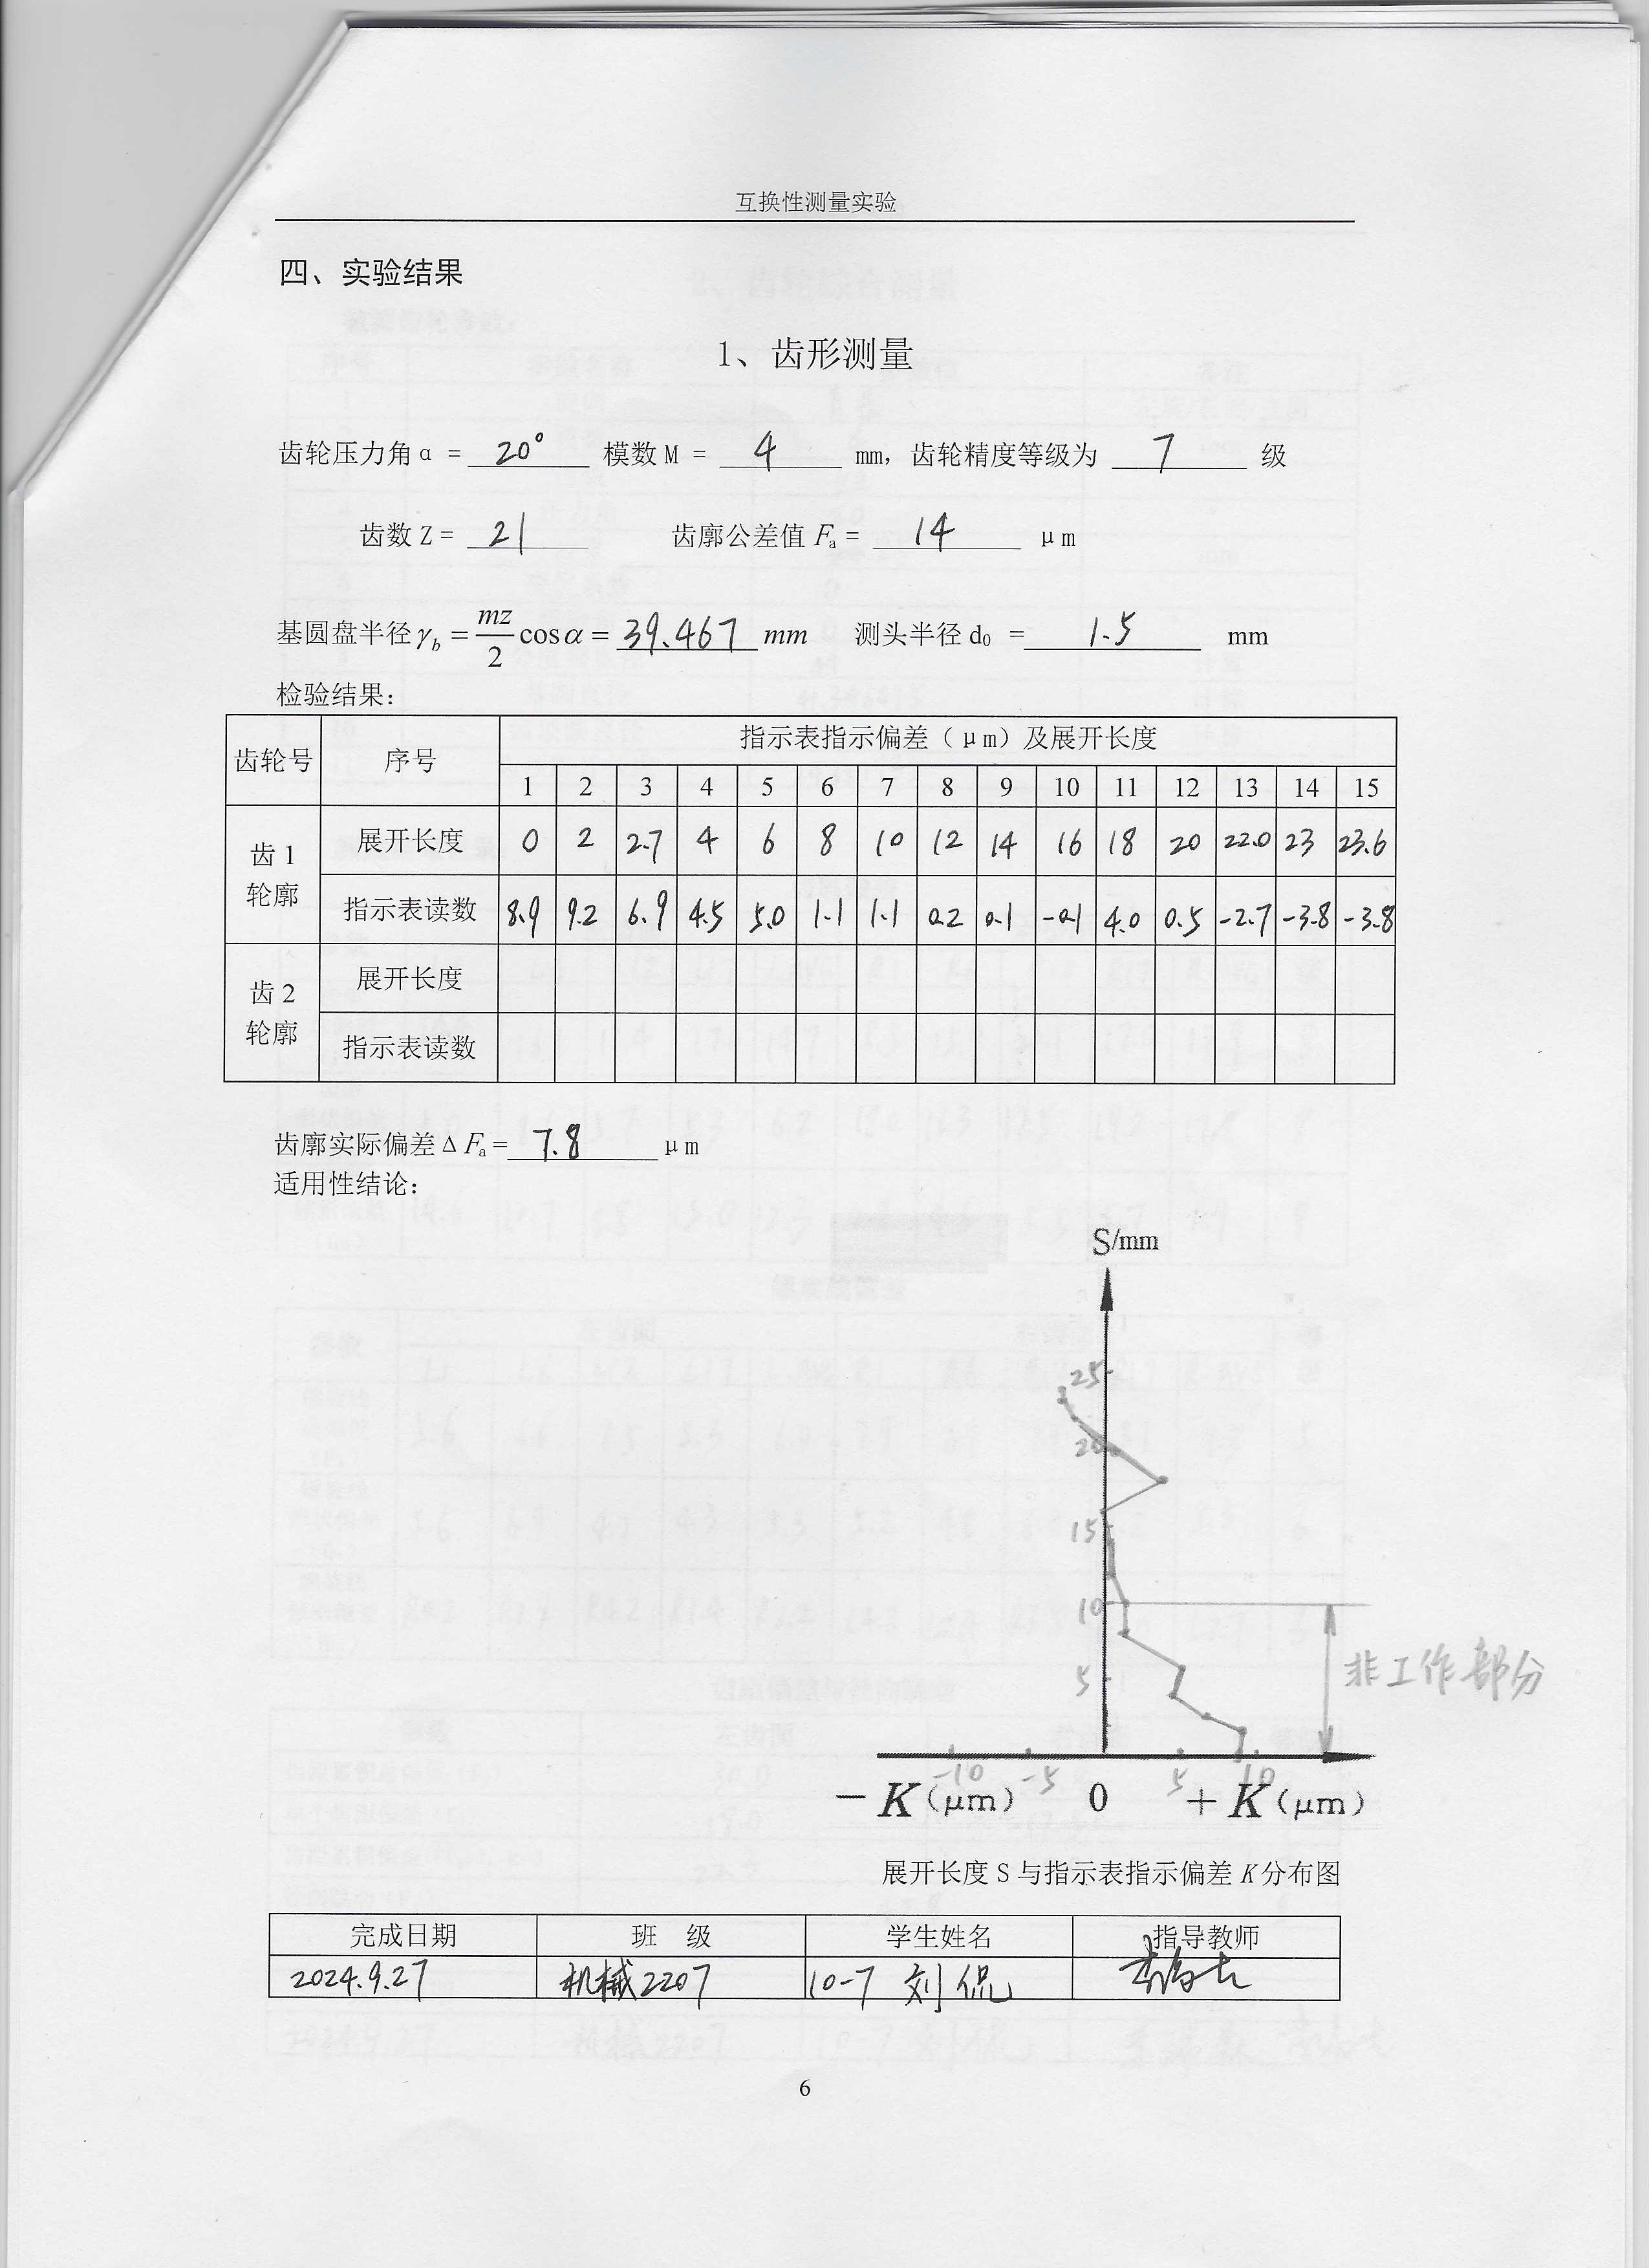 互换性测量实验
四、实验结果
1、齿形测量
齿轮压力角α = 20° 模数M = 4 mm，齿轮精度等级为 7 级
齿数Z = 21 齿廓公差值 Fa = 14 μm
基圆盘半径γb = mz/2 cosα = 39.467 mm 测头半径d0 = 1.5 mm
检验结果：
齿轮号 序号 指示表指示偏差（μm）及展开长度
1 2 3 4 5 6 7 8 9 10 11 12 13 14 15
齿1轮廓 展开长度 0 2 2.7 4 6 8 10 12 14 16 18 20 22.0 23 23.6
指示表读数 8.9 9.2 6.9 4.5 5.0 1.1 1.1 0.2 0.1 -0.1 4.0 0.5 -2.7 -3.8 -3.8
齿2轮廓 展开长度
指示表读数
齿廓实际偏差Δ Fa = 7.8 μm
适用性结论：
S/mm
25
20
15
10
5
非工作部分
-10 -5 5 10
－K(μm) 0 ＋K(μm)
展开长度S与指示表指示偏差K分布图
完成日期 班 级 学生姓名 指导教师
2024.9.27 机械2207 10-7 刘侃
6